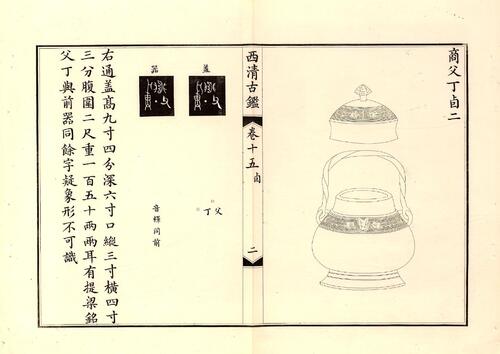 商父丁卣二
西清古鑑
卷十五
卣
二
蓋
器
父
丁
音釋同前
右通蓋高九寸四分深六寸口縱三寸橫四寸
三分腹圍二尺重一百五十兩兩耳有提梁銘
父丁與前器同餘字疑象形不可識